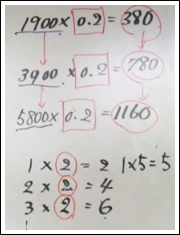 1900 × 0.2 = 380
3900 × 0.2 = 780
5800 × 0.2 = 1160
1 × 2 = 2 1×5=5
2 × 2 = 4
3 × 2 = 6